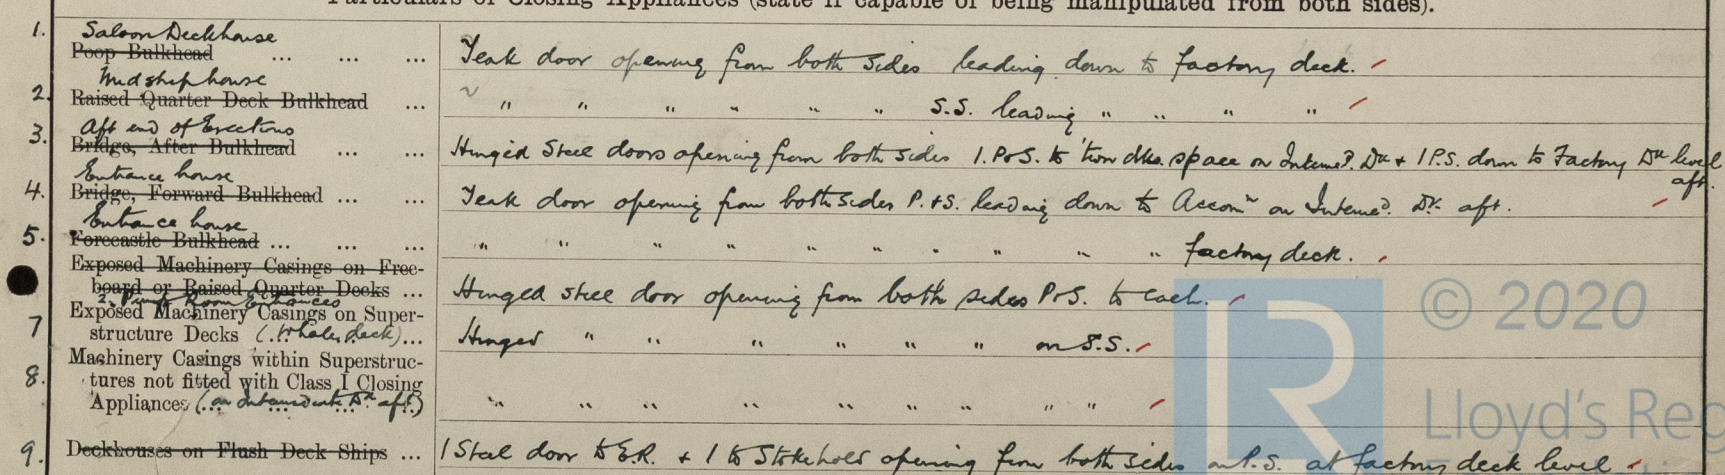 Particulars of Closing Appliances (state if capable of being manipulated from both sides).
1. Saloon Deckhouse
Poop Bulkhead ... ... ... Teak door opening from both sides leading down to factory deck.
Midship house
2. Raised Quarter Deck Bulkhead ... " " " " " " S.S. leading " " " "
Aft end of Erections
3. Bridge, After Bulkhead ... ... Hinged Steel doors opening from both sides 1. P&S. to 'twn dks. space on Intermed. Dk & 1 P.S. down to Factory Dk level aft.
Entrance house
4. Bridge, Forward Bulkhead ... ... Teak door opening from both sides P.&S. leading down to Accomn on Intermed. Dk. aft.
Entrance house
5. Forecastle Bulkhead ... ... ... " " " " " " " " " " " factory deck.
Exposed Machinery Casings on Free-
board or Raised Quarter Decks ... Hinged steel door opening from both sides P&S. to each.
2. Pump Room Entrances
Exposed Machinery Casings on Super-
7 structure Decks (Whale deck) ... Hinged " " " " " " on S.S.
Machinery Casings within Superstruc-
8. tures not fitted with Class I Closing
Appliances (on Intermediate Dk aft) " " " " " " " " "
9. Deckhouses on Flush Deck Ships ... 1 Steel door to E.R. & 1 to Stokehold opening from both sides on P.S. at factory deck level
© 2020
LR
Lloyd's Reg